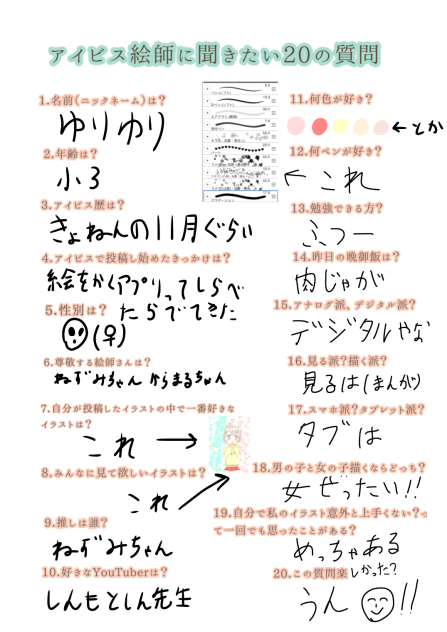 アイビス絵師に聞きたい20の質問
1.名前(ニックネーム)は?
ゆりゆり
2.年齢は?
小3
3.アイビス歴は?
きょねんの11月ぐらい
4.アイビスで投稿し始めたきっかけは?
絵をかくアプリってしらべ
たらでてきた
5.性別は?
(♀)
6.尊敬する絵師さんは?
ねずみちゃん からまるちゃん
7.自分が投稿したイラストの中で一番好きな
イラストは?
これ
8.みんなに見て欲しいイラストは?
これ
9.推しは誰?
ねずみちゃん
10.好きなYouTuberは?
しんもとしん先生
11.何色が好き?
←とか
12.何ペンが好き?
←これ
13.勉強できる方?
ふつー
14.昨日の晩御飯は?
肉じゃが
15.アナログ派、デジタル派?
デジタルやな
16.見る派?描く派?
見るは(まんが)
17.スマホ派?タブレット派?
タブは
18.男の子と女の子描くならどっち?
女ぜったい!!
19.自分で私のイラスト意外と上手くない?っ
て一回でも思ったことがある?
めっちゃある
20.この質問楽しかった?
うん!!